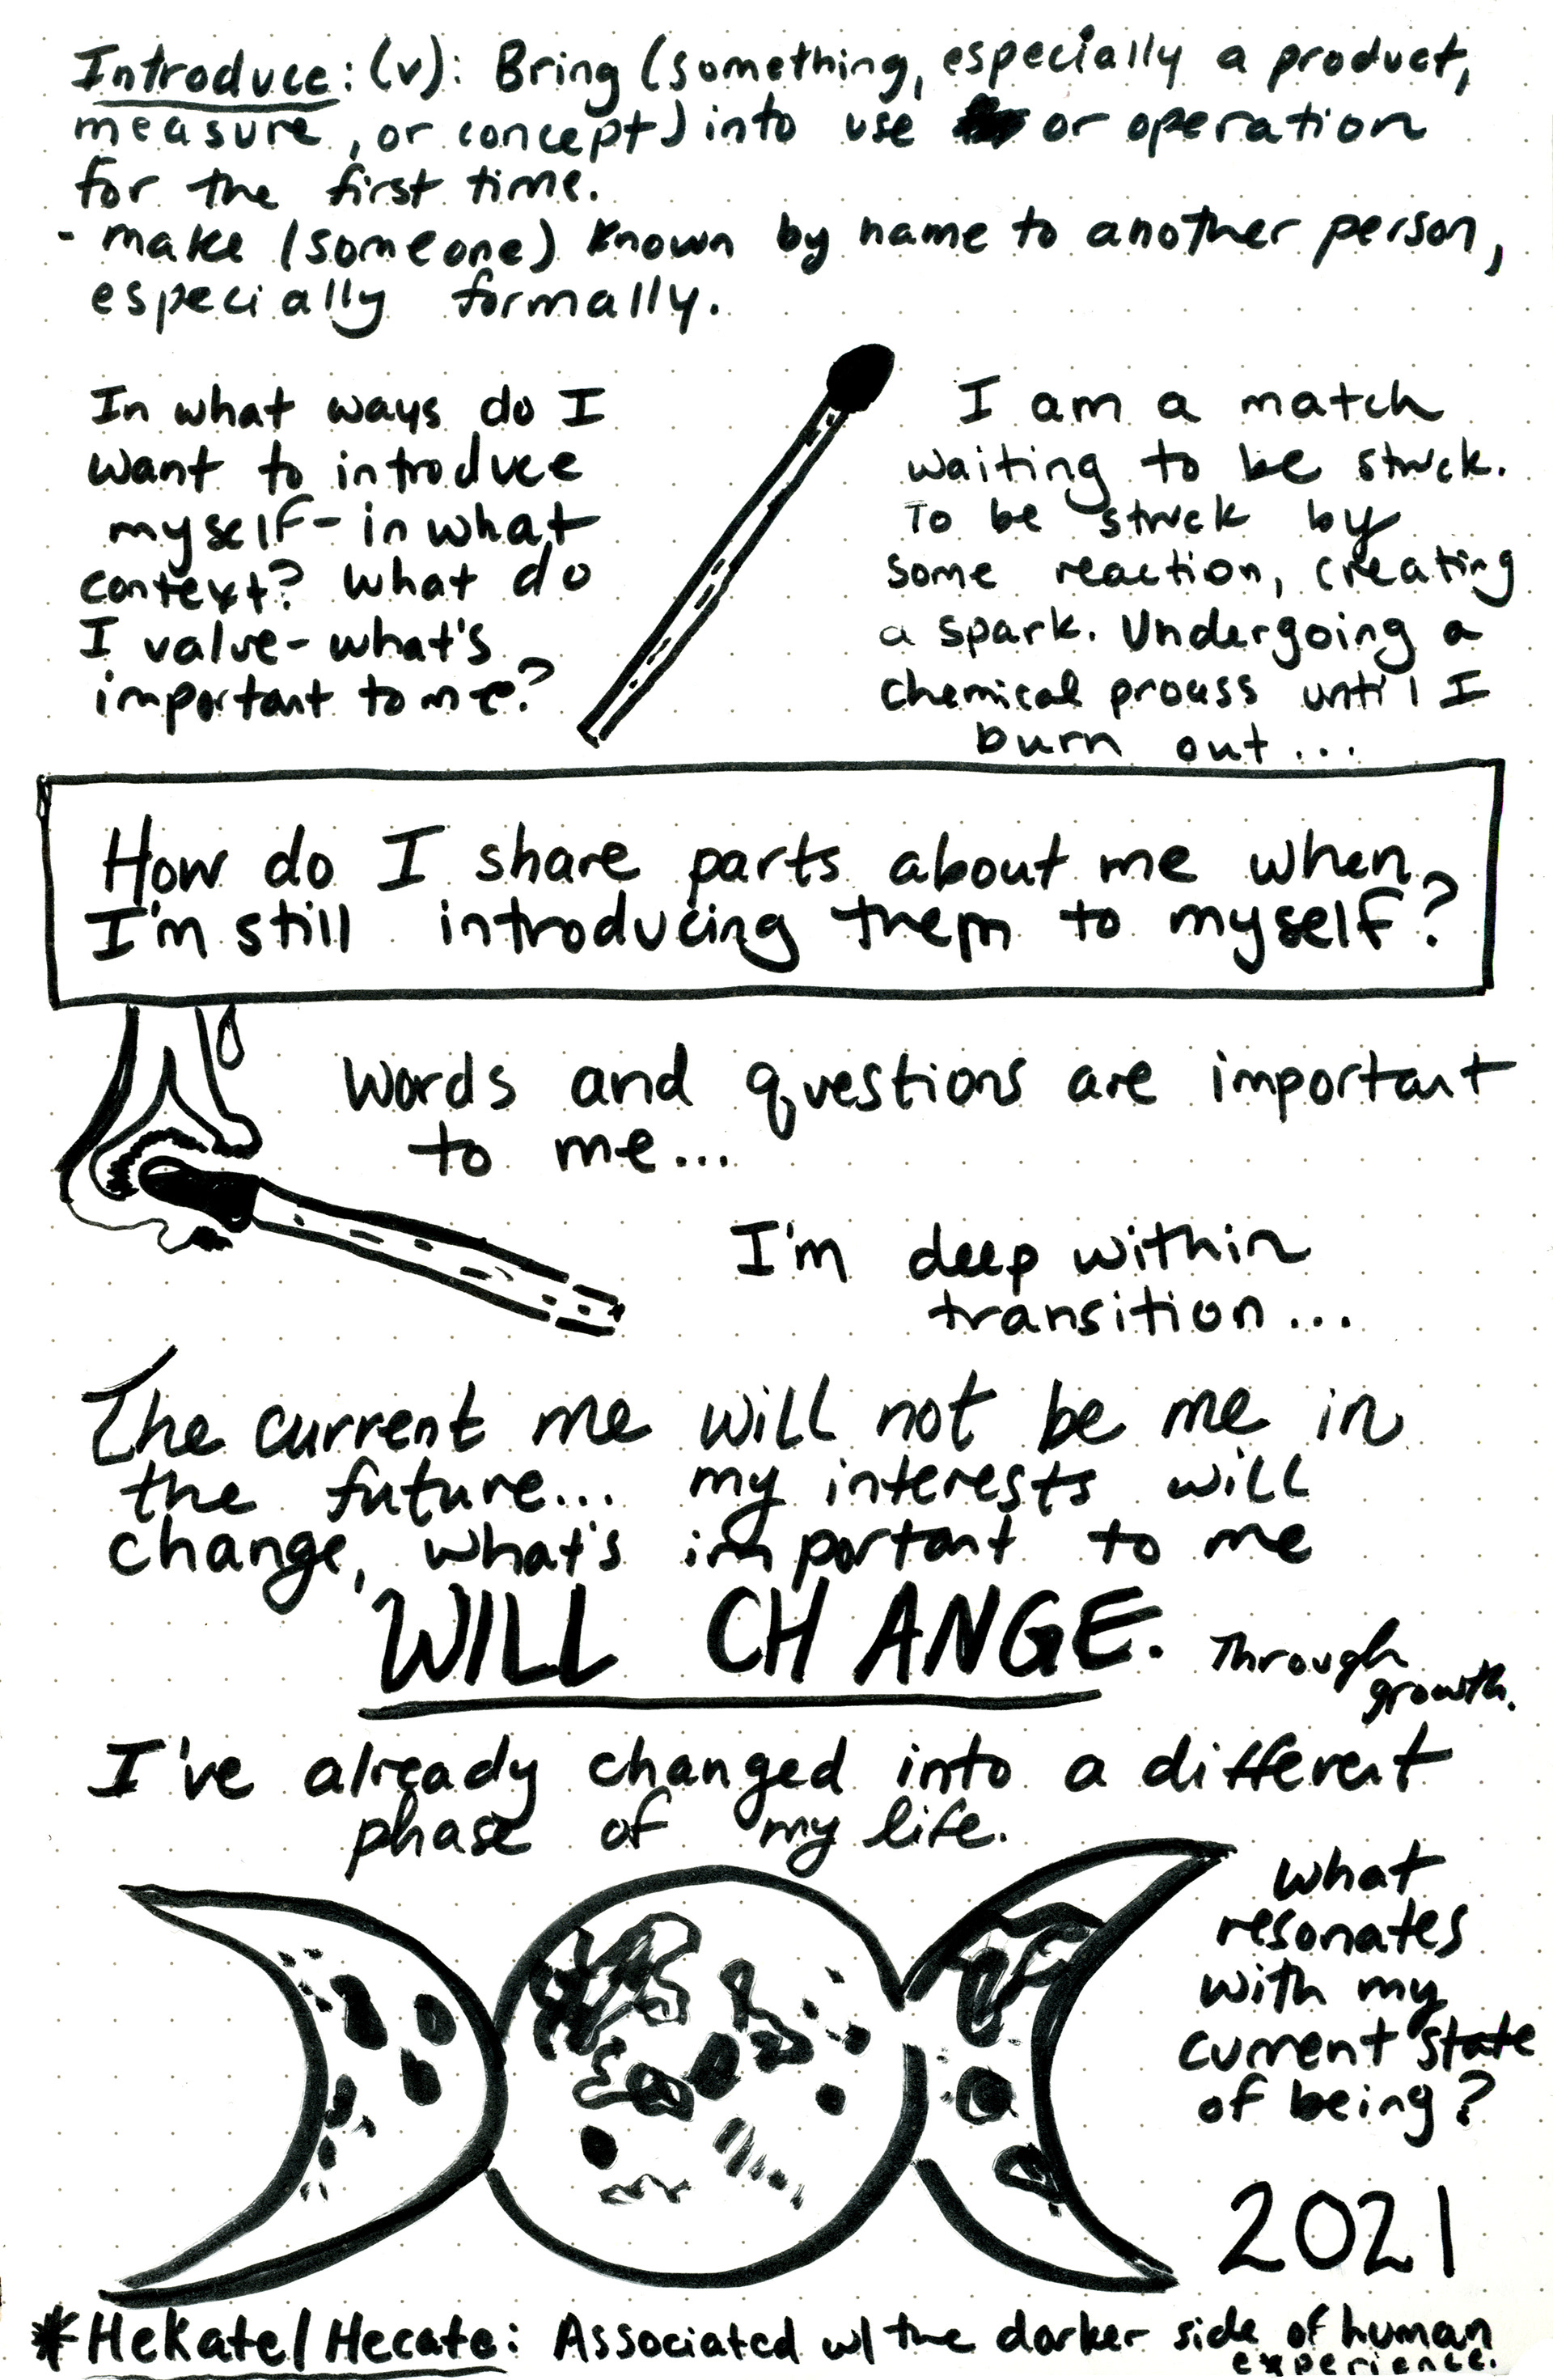 Introduce: (v): Bring (something, especially a product,
measure, or concept) into use or operation
for the first time.
- make (someone) known by name to another person,
especially formally.
In what ways do I
want to introduce
myself - in what
context? What do
I value - what's
important to me?
I am a match
waiting to be struck.
To be struck by
some reaction, creating
a spark. Undergoing a
chemical process until I
burn out...
How do I share parts about me when
I'm still introducing them to myself?
Words and questions are important
to me...
I'm deep within
transition...
The current me will not be me in
the future... my interests will
change, what's important to me
WILL CHANGE. Through
growth.
I've already changed into a different
phase of my life.
What
resonates
with my
current state
of being?
2021
*Hekate/Hecate: Associated w/ the darker side of human
experience.